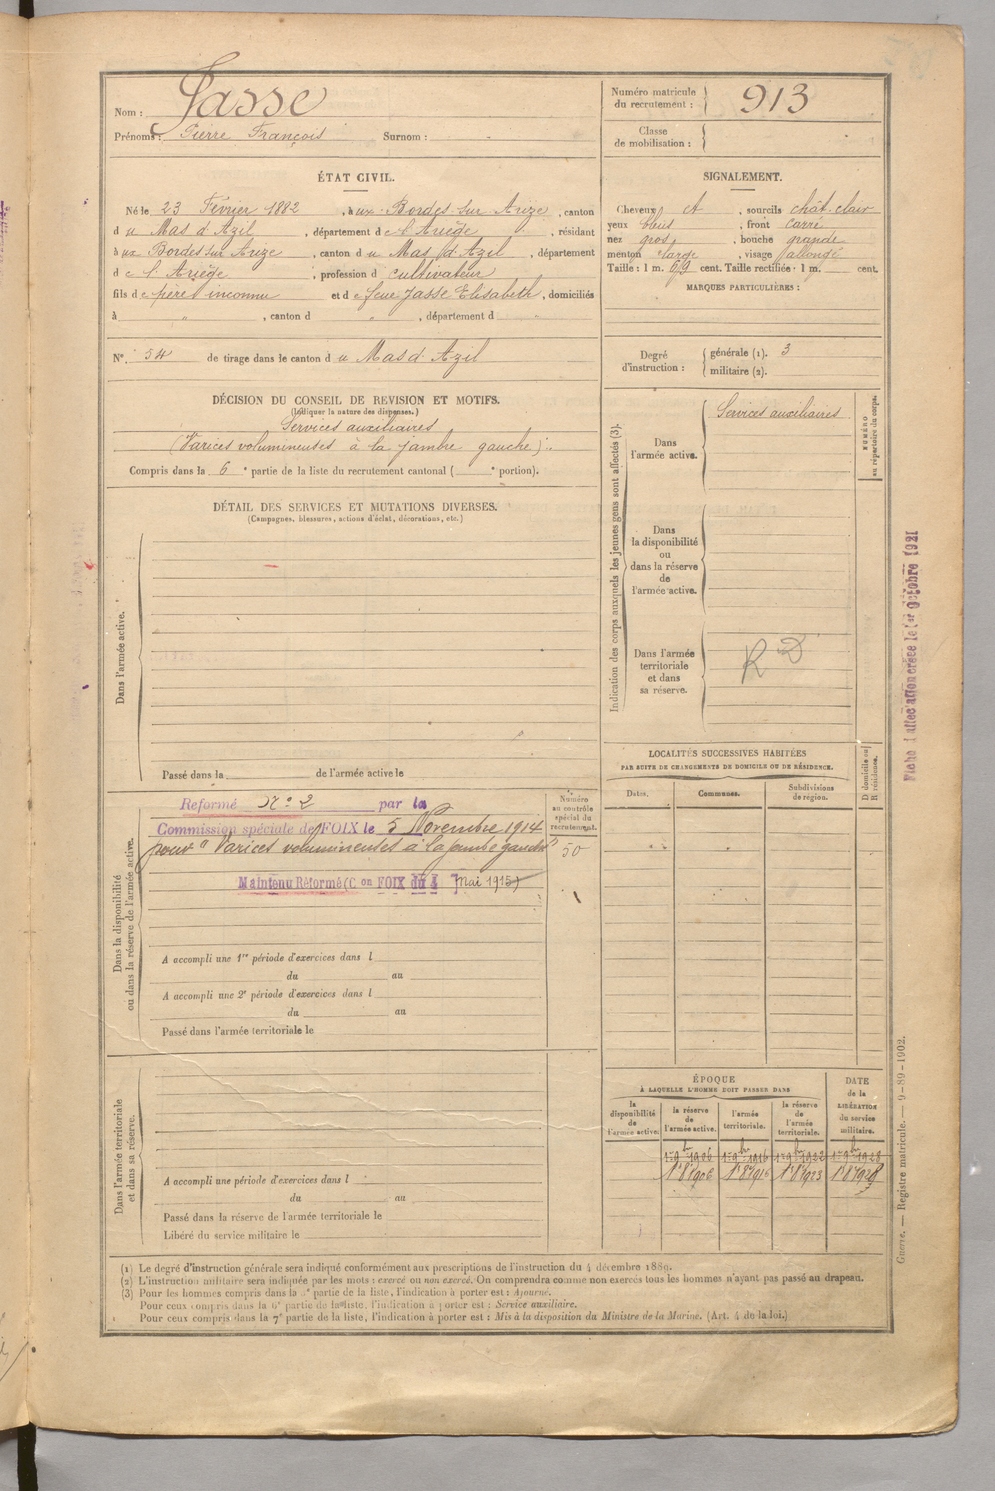 Nom : Jasse
Prénoms : Pierre François Surnom : -
Numéro matricule du recrutement : 913
Classe de mobilisation :
ÉTAT CIVIL.
Né le 23 Février 1882, à ux Bordes sur Arize, canton
d u Mas d'Azil, département d e l'Ariège, résidant
à ux Bordes sur Arize, canton d u Mas d'Azil, département
d e l'Ariège, profession d cultivateur
fils d e père inconnu et d e feue Jasse Elisabeth, domiciliés
à " , canton d " , département d "
N° 54 de tirage dans le canton d u Mas d'Azil
SIGNALEMENT.
Cheveux et, sourcils chât. clair
yeux bleus, front carré
nez gros, bouche grande
menton large, visage allongé
Taille : 1 m. 69 cent. Taille rectifiée : 1 m. cent.
MARQUES PARTICULIÈRES :
Degré d'instruction : générale (1). 3
militaire (2).
DÉCISION DU CONSEIL DE REVISION ET MOTIFS.
(Indiquer la nature des dispenses.)
Services auxiliaires
(Varices volumineuses à la jambe gauche).
Compris dans la 6e partie de la liste du recrutement cantonal ( e portion).
DÉTAIL DES SERVICES ET MUTATIONS DIVERSES.
(Campagnes, blessures, actions d'éclat, décorations, etc.)
Dans l'armée active.
Passé dans la de l'armée active le
Indication des corps auxquels les jeunes gens sont affectés (3).
Dans l'armée active.
Services auxiliaires
NUMÉRO au répertoire du corps.
Dans la disponibilité ou dans la réserve de l'armée active.
Dans l'armée territoriale et dans sa réserve.
R D
Fiche d'affectation créée le 1er octobre 1921
LOCALITÉS SUCCESSIVES HABITÉES
PAR SUITE DE CHANGEMENTS DE DOMICILE OU DE RÉSIDENCE.
Dates.
Communes.
Subdivisions de région.
D domicile ou R résidence.
Dans la disponibilité ou dans la réserve de l'armée active.
Réformé N° 2 par la
Commission spéciale de FOIX le 5 Novembre 1914
pour "Varices volumineuses à la jambe gauche"
Maintenu Réformé (Con FOIX du 7 Mai 1915)
Numéro au contrôle spécial du recrutement.
50
A accompli une 1re période d'exercices dans l
du au
A accompli une 2e période d'exercices dans l
du au
Passé dans l'armée territoriale le
Dans l'armée territoriale et dans sa réserve.
A accompli une période d'exercices dans l
du au
Passé dans la réserve de l'armée territoriale le
Libéré du service militaire le
ÉPOQUE
À LAQUELLE L'HOMME DOIT PASSER DANS
la disponibilité de l'armée active.
la réserve de l'armée active.
l'armée territoriale.
la réserve de l'armée territoriale.
DATE de la LIBÉRATION du service militaire.
1er 9bre 1906 1er 9bre 1916 1er 9bre 1922 1er 9bre 1928
(1) Le degré d'instruction générale sera indiqué conformément aux prescriptions de l'instruction du 4 décembre 1889.
(2) L'instruction militaire sera indiquée par les mots : exercé ou non exercé. On comprendra comme non exercés tous les hommes n'ayant pas passé au drapeau.
(3) Pour les hommes compris dans la 5e partie de la liste, l'indication à porter est : Ajourné.
Pour ceux compris dans la 6e partie de la liste, l'indication à porter est : Service auxiliaire.
Pour ceux compris dans la 7e partie de la liste, l'indication à porter est : Mis à la disposition du Ministre de la Marine. (Art. 4 de la loi.)
Guerre. — Registre matricule. — 9-89-1902.